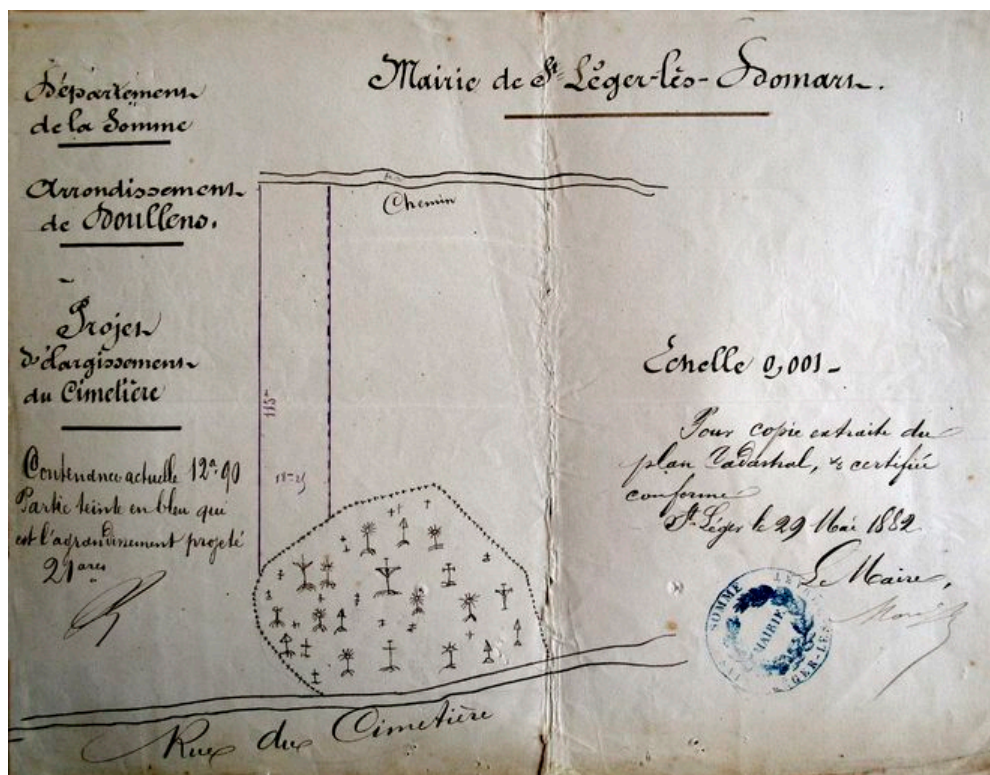 Mairie de St Léger-lès-Domart.
Département
de la Somme
Arrondissement
de Doullens.
Projet
d'élargissement
du Cimetière
Contenance actuelle 12a 90
Partie teinte en bleu qui
est l'agrandissement projeté
21 ares
Chemin
115m
18m25
Echelle 0,001
Pour copie extraite du
plan Cadastral, & certifiée
conforme
St Léger le 29 Mai 1882
Le Maire,
SOMME
MAIRIE
LÉGER-LES
Rue du Cimetière